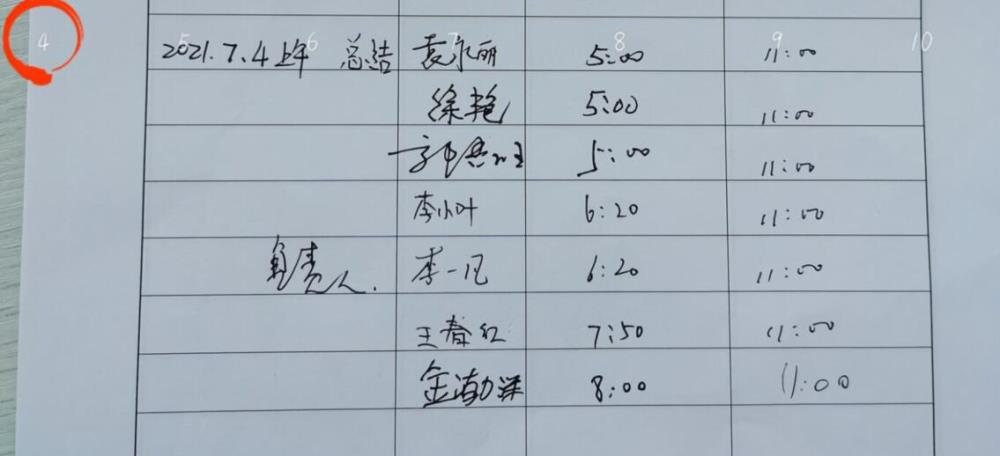 4 5 6 7 8 9 10
2021.7.4上午 总结 袁永丽 5:00 11:00
徐艳 5:00 11:00
5:00 11:00
李小叶 6:20 11:00
负责人. 李一凡 6:20 11:00
王春红 7:50 11:00
金 8:00 11:00